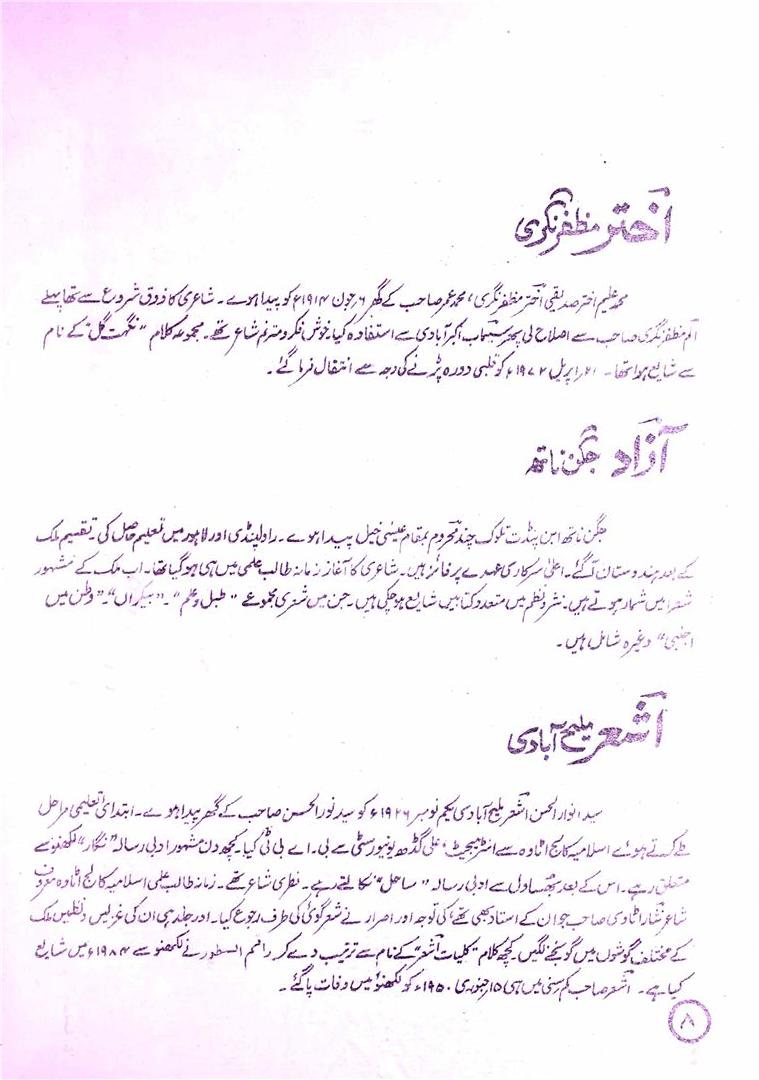 اختر مظفرنگری
محمد علیم اختر صدیقی اختر مظفرنگری، محمد عمر صاحب کے گھر ۶ر جون ۱۹۱۴ء کو پیدا ہوے۔ شاعری کا ذوق شروع سے تھا پہلے
الم مظفرنگری صاحب سے اصلاح لی پھر سیماب اکبرآبادی سے استفادہ کیا۔ خوش فکر و مترنم شاعر تھے۔ مجموعہ کلام "نگہت گل" کے نام
سے شایع ہوا تھا۔ ۲۱ر اپریل ۱۹۷۲ء کو قلبی دورہ پڑنے کی وجہ سے انتقال فرما گئے۔
آزاد جگن ناتھ
جگن ناتھ ابن پنڈت تلوک چند محروم بمقام عیسیٰ خیل پیدا ہوے۔ راولپنڈی اور لاہور میں تعلیم حاصل کی۔ تقسیم ملک
کے بعد ہندوستان آ گئے۔ اعلیٰ سرکاری عہدے پر فائز ہیں۔ شاعری کا آغاز زمانہ طالب علمی میں ہی ہو گیا تھا۔ اب ملک کے مشہور
شعرا میں شمار ہوتے ہیں۔ نثر و نظم میں متعدد کتابیں شایع ہو چکی ہیں۔ جن میں شعری مجموعے "طبل و علم"۔ "بیکراں"۔ "وطن میں
اجنبی" وغیرہ شامل ہیں۔
اشعر ملیح آبادی
سید انوار الحسن اشعر ملیح آبادی یکم نومبر ۱۹۲۶ء کو سید نور الحسن صاحب کے گھر پیدا ہوے۔ ابتدای تعلیمی مراحل
طے کرتے ہوئے اسلامیہ کالج اٹاوہ سے انٹرمیجیٹ، علی گڈھ یونیورسٹی سے بی۔ اے بی ٹی کیا۔ کچھ دن مشہور ادبی رسالہ "نگار" لکھنؤ سے
متعلق رہے۔ اس کے بعد بھساول سے ادبی رسالہ "ساحل" نکالتے رہے۔ نظری شاعر تھے۔ زمانہ طالب علمی اسلامیہ کالج اٹاوہ معروف
شاعر نثار اٹاوی صاحب جو ان کے استاد بھی تھے، کی توجہ اور اصرار نے شعر گوئی کی طرف رجوع کیا۔ اور جلد ہی ان کی غزلیں و نظمیں ملک
کے مختلف گوشوں میں گونجنے لگیں۔ کچھ کلام "کلیات اشعر" کے نام سے ترتیب دے کر راقم السطور نے لکھنؤ سے ۱۹۸۴ء میں شایع
کیا ہے۔ اشعر صاحب کم سنی میں ہی ۱۵ر جنوری ۱۹۵۰ء کو لکھنؤ میں وفات پا گئے۔
۸